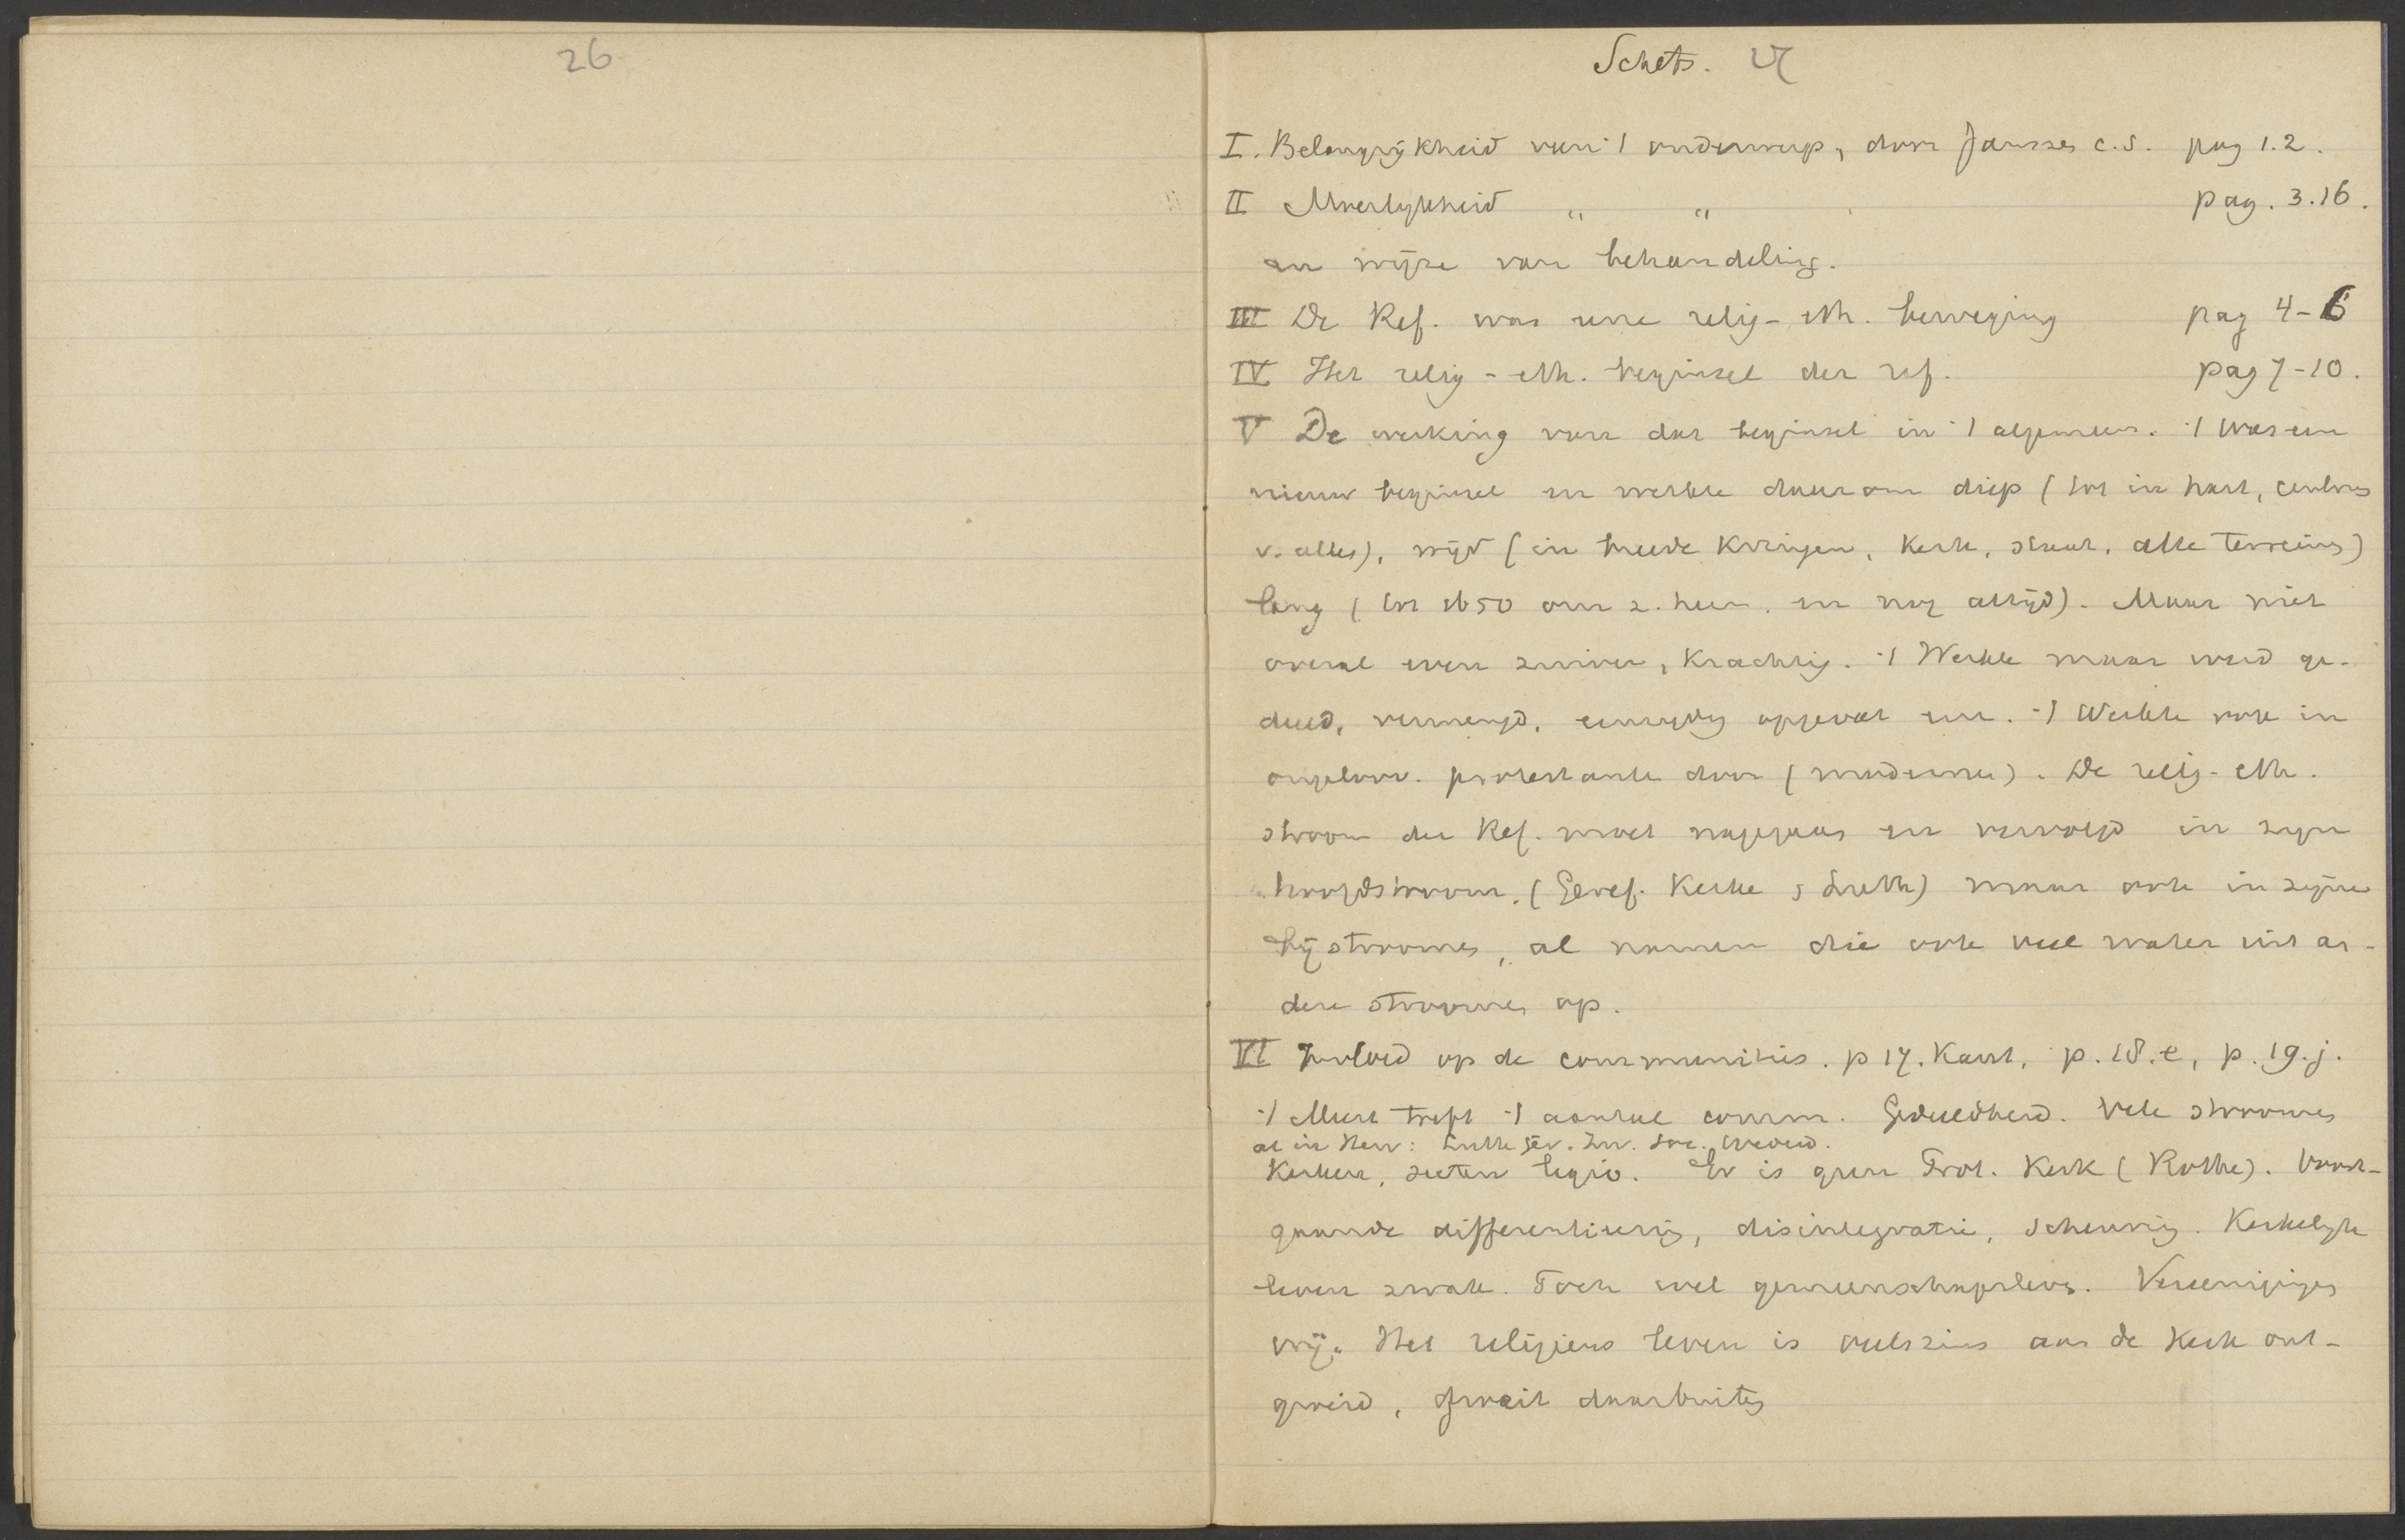 26
Schets. 27
I. Belangrijkheid van 't onderwerp, door Janssen c.s. pag 1.2.
II Moeilykheid " " pag. 3.16.
en wijze van behandeling.
III De Ref. was eene relig-eth. beweging pag 4-6
IV Het relig-eth. beginsel der ref. pag 7-10.
V De werking van dat beginsel in 't algemeen. 't Was een
nieuw beginsel en werkte daarom diep (tot in hart, centrum
v. alles), wijd (in breede kringen, kerk, staat, alle terreinen)
lang (tot 1650 en nog altijd). Maar niet
overal even zuiver, krachtig. 't Werkte maar werd ge-
deeld, vermengd, eenzydig opgevat enz. 't Werkte ook in
ongeloov. protestanten door (modernen). De relig-eth.
stroom der Ref. moet nagegaan en vervolgd in zyn
hoofdstroom. (Geref. Kerke, Luth) maar ook in zijne
bijstroomen, al namen die ook veel water uit an-
dere stroomen op.
VI Invloed op de communities. p 17. Kant, p. 18.e, p. 19.j.
't Meest treft 't aantal comm. Gedeeldheid. Vele stroomen
al in Herv: Luth Zw. Soc.
Kerken, secten legio. Er is geen Prot. Kerk (Rothe). Voort-
gaande differentieering, disintegratie, scheuring. Kerkelyk
leven zwak. Toch wel gemeenschapsleven. Vereenigingen
vrij. Het religieus leven is veelszins aan de kerk ont-
groeid, groeit daarbuiten